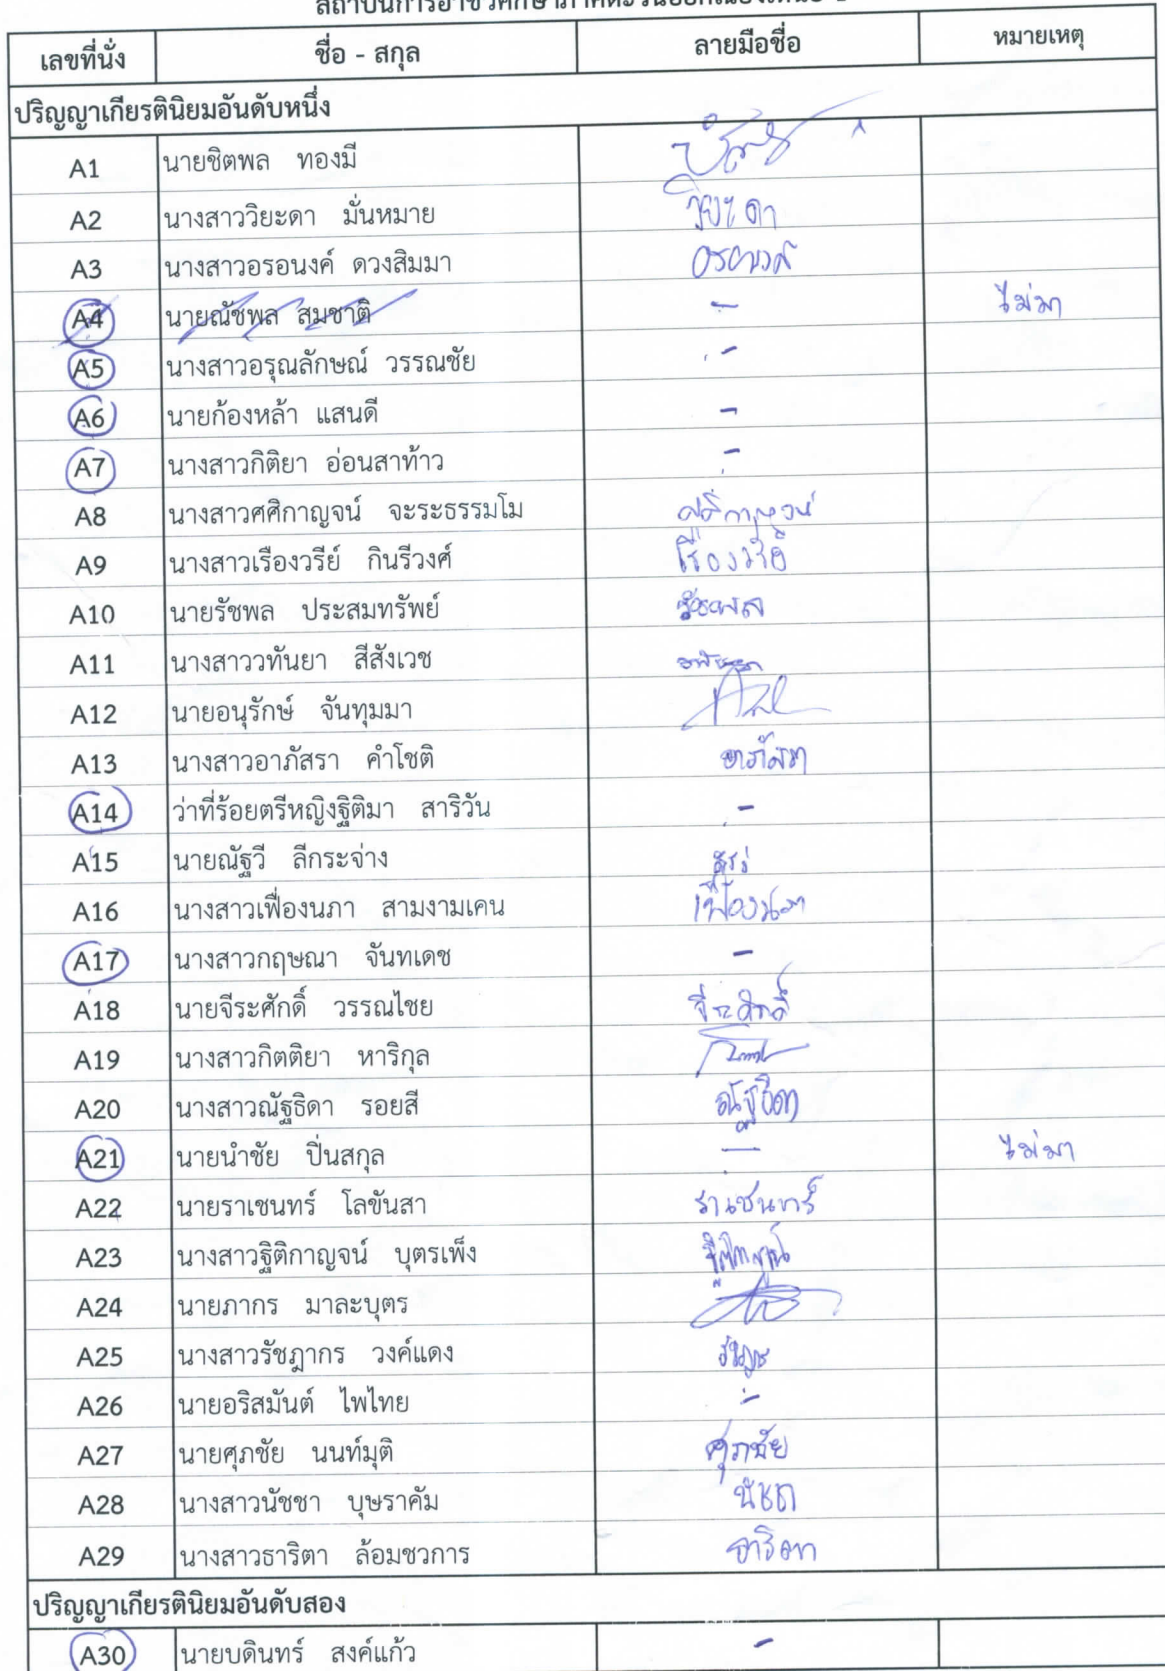 เลขที่นั่ง ชื่อ - สกุล ลายมือชื่อ หมายเหตุ
ปริญญาเกียรตินิยมอันดับหนึ่ง
A1 นายชิตพล ทองมี
A2 นางสาววิยะดา มั่นหมาย วิยะดา
A3 นางสาวอรอนงค์ ดวงสิมมา อรอนงค์
A4 นายณัชพล สมชาติ - ไม่มา
A5 นางสาวอรุณลักษณ์ วรรณชัย -
A6 นายก้องหล้า แสนดี -
A7 นางสาวกิติยา อ่อนสาท้าว -
A8 นางสาวศศิกาญจน์ จะระธรรมโม ศศิกาญจน์
A9 นางสาวเรืองวรีย์ กินรีวงศ์
A10 นายรัชพล ประสมทรัพย์ รัชพล
A11 นางสาววทันยา สีสังเวช
A12 นายอนุรักษ์ จันทุมมา
A13 นางสาวอาภัสรา คำโชติ อาภัสรา
A14 ว่าที่ร้อยตรีหญิงฐิติมา สาริวัน -
A15 นายณัฐวี ลีกระจ่าง
A16 นางสาวเฟื่องนภา สามงามเคน เฟื่องนภา
A17 นางสาวกฤษณา จันทเดช -
A18 นายจีระศักดิ์ วรรณไชย จีระศักดิ์
A19 นางสาวกิตติยา หาริกุล
A20 นางสาวณัฐธิดา รอยสี ณัฐธิดา
A21 นายนำชัย ปิ่นสกุล - ไม่มา
A22 นายราเชนทร์ โลขันสา ราเชนทร์
A23 นางสาวฐิติกาญจน์ บุตรเพ็ง ฐิติกาญจน์
A24 นายภากร มาละบุตร
A25 นางสาวรัชฎากร วงค์แดง
A26 นายอริสมันต์ ไพไทย -
A27 นายศุภชัย นนท์มุติ ศุภชัย
A28 นางสาวนัชชา บุษราคัม นัชชา
A29 นางสาวธาริตา ล้อมชวการ ธาริตา
ปริญญาเกียรตินิยมอันดับสอง
A30 นายบดินทร์ สงค์แก้ว -